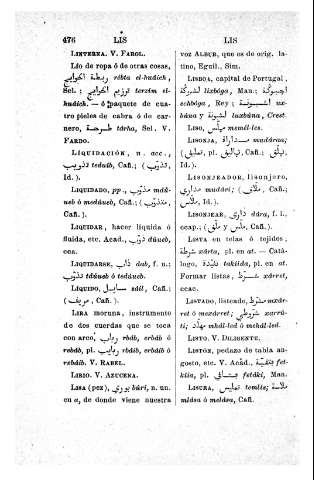 476 LIS LIS
LINTERNA. V. FAROL.
Lío de ropa ó de otras cosas,
ربطة الحوايج rébta el-hudich,
Sel.; توزيم الحوايج terzím el-
hudich. — ó paquete de cua-
tro pieles de cabra ó de car-
nero, طرحة tárha, Sel. V.
FARDO.
LIQUIDACIÓN, n. acc.,
تذويب teduíb, Cañ.; (تذوّب,
Id.).
LIQUIDADO, pp., مذوّب mdú-
ueb ó meduueb, Cañ.; (متذوّب,
Cañ.).
LIQUIDAR, hacer líquida ó
fluida, etc. Acad., ذوّب dáueb,
cca.
LIQUIDARSE, ذاب dab, f. u.;
تذوّب tdáueb ó tedáueb.
LÍQUIDO, سايل sáil, Cañ.;
Cañ.).
LIRA moruna, instrumento
de dos cuerdas que se toca
con arco, رباب rbáb, erbáb ó
rebáb, pl. ربايب rbáib, erbáib ó
rebáib. V. RABEL.
LIRIO. V. AZUCENA.
LISA (pez), بوري búri, n. un.
en a, de donde viene nuestra
voz ALBUR, que es de orig. la-
tino, Eguil., Sim.
LISBOA, capital de Portugal,
لشبونة Man.;
echbóga, Rey; اشبونة ux-
búna y لشبونة luxbúna, Crest.
LISO, مملّس memél-les.
LISONJA, مداراة mudárau;
(تمليق, pl. تماليق, Cañ.; تملّق,
Id.).
LISONJEADOR, lisonjero,
مداري mudári; (ملّاق, Cañ.;
Id.).
LISONJEAR, دارى dára, f. i.,
ccap.; (ملق y Cañ.).
LISTA en telas ó tejidos,
شرطة xárta, pl. en at. — Catá-
logo, تقييدة takiida, pl. en at.
Formar listas, شرّط xárret,
ccac.
LISTADO, listeado, مشرّط mxár-
ret ó mexárret; شروطي xarrú-
ti; مهدّل mhál-led ó mehál-led.
LISTO. V. DILIGENTE.
LISTÓN, pedazo de tabla an-
gosto, etc. V. Acad., فتقة fet-
kiia, pl. fetáki, Man.
LISURA, تمليس temlís; ملاسة
mlása ó melása, Cañ.